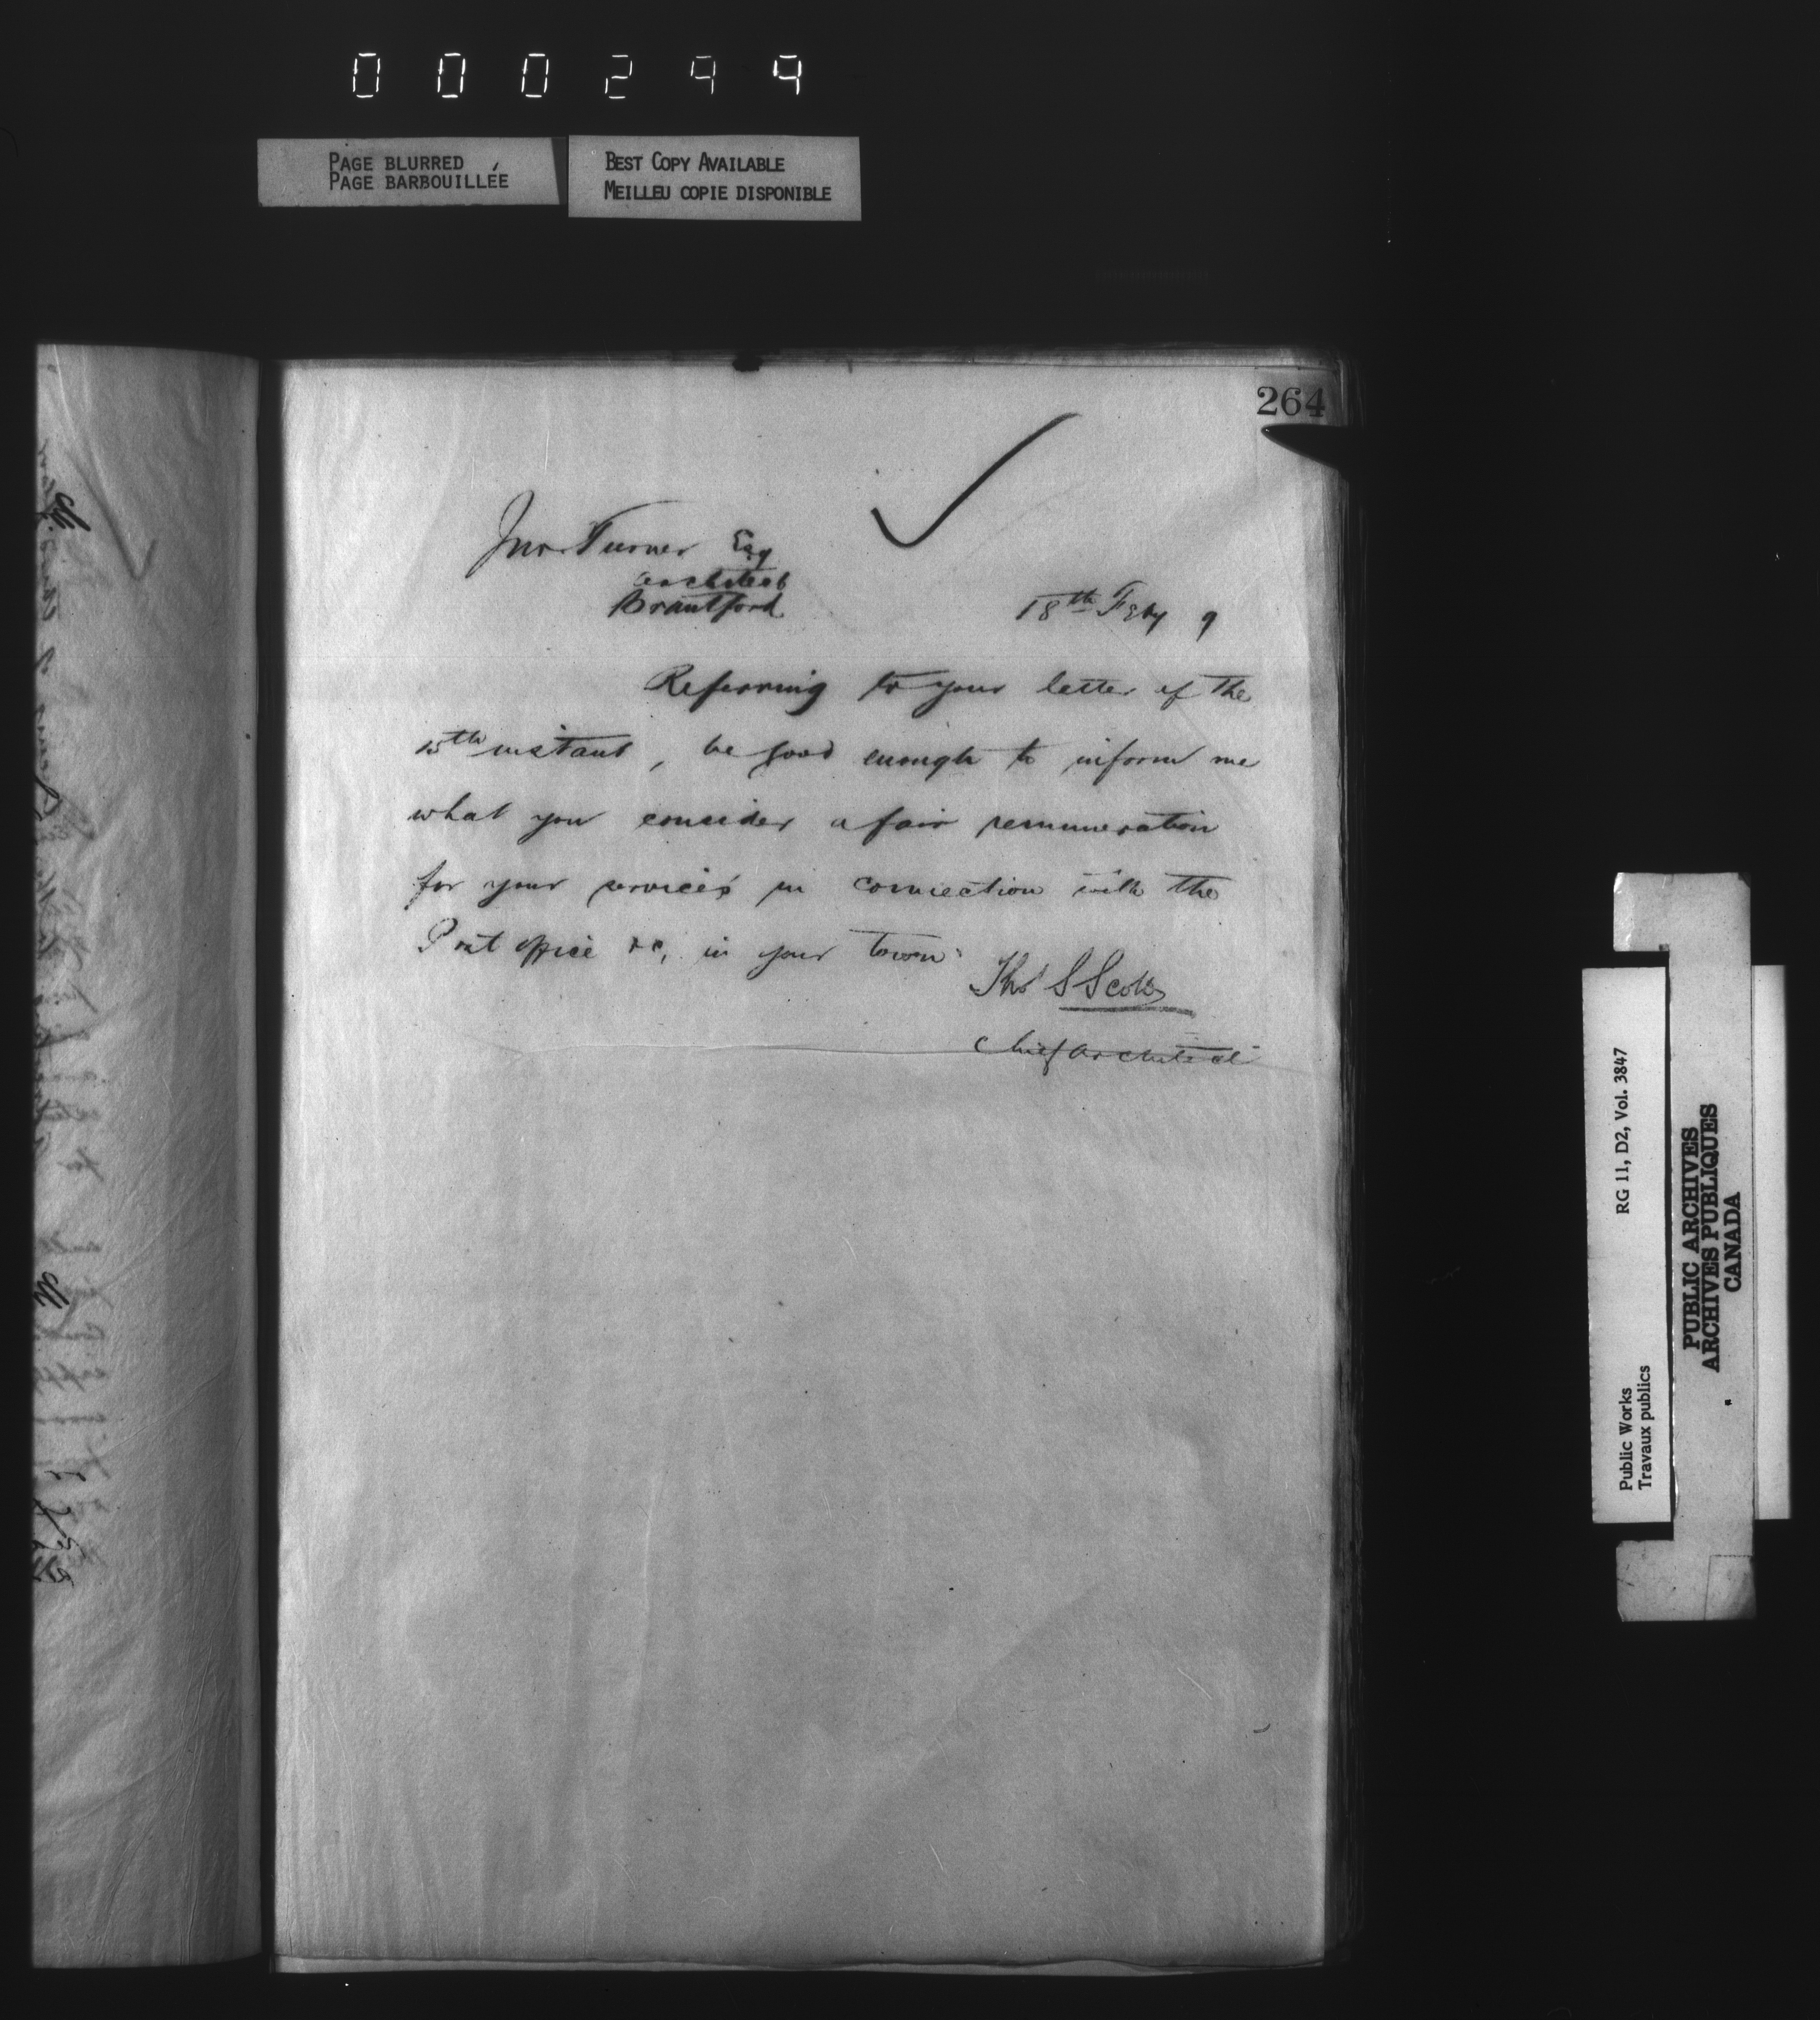 000299
PAGE BLURRED
PAGE BARBOUILLÉE
BEST COPY AVAILABLE
MEILLEU COPIE DISPONIBLE
264
Jno. Turner Esq
architect
Brantford
18th Feby 9
Referring to your letter of the
15th instant, be good enough to inform me
what you consider a fair remuneration
for your services in connection with the
Post office &c, in your town.
Thos S Scott
Chief Architect
RG 11, D2, Vol. 3847
Public Works
Travaux publics
PUBLIC ARCHIVES
ARCHIVES PUBLIQUES
CANADA